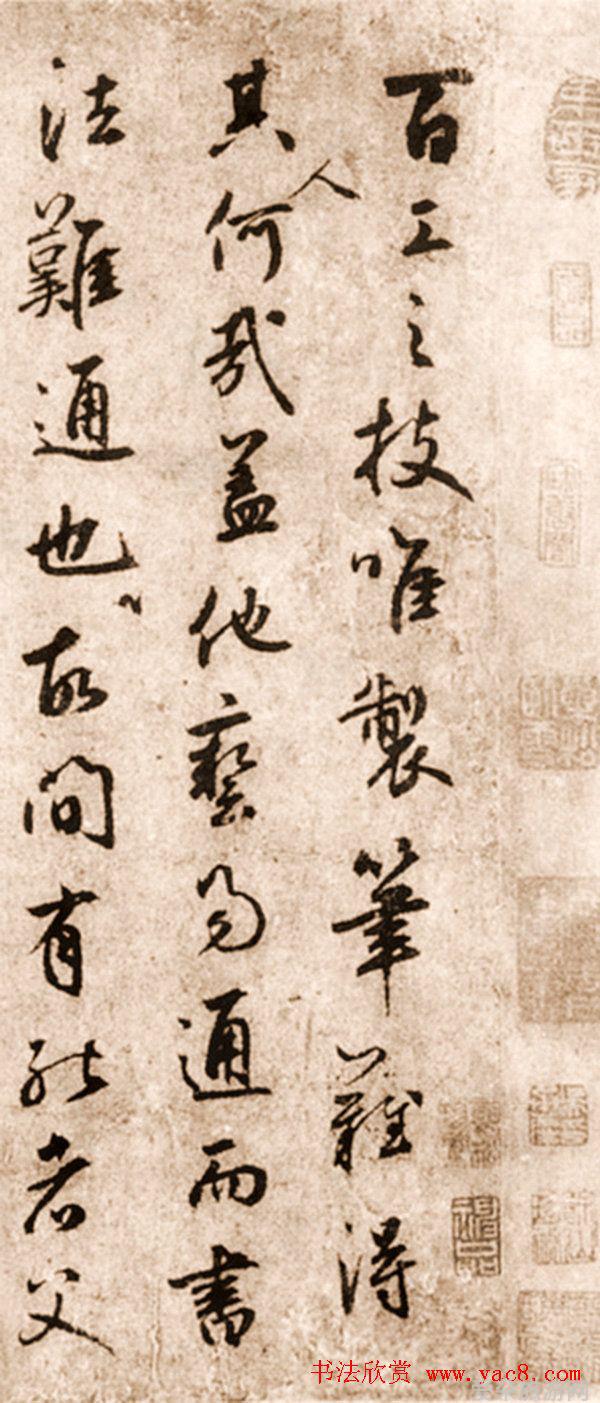 百工之技唯製筆難得
其人何哉蓋他藝易通而書
法難通也故間有能者父
书法欣赏 www.yac8.com